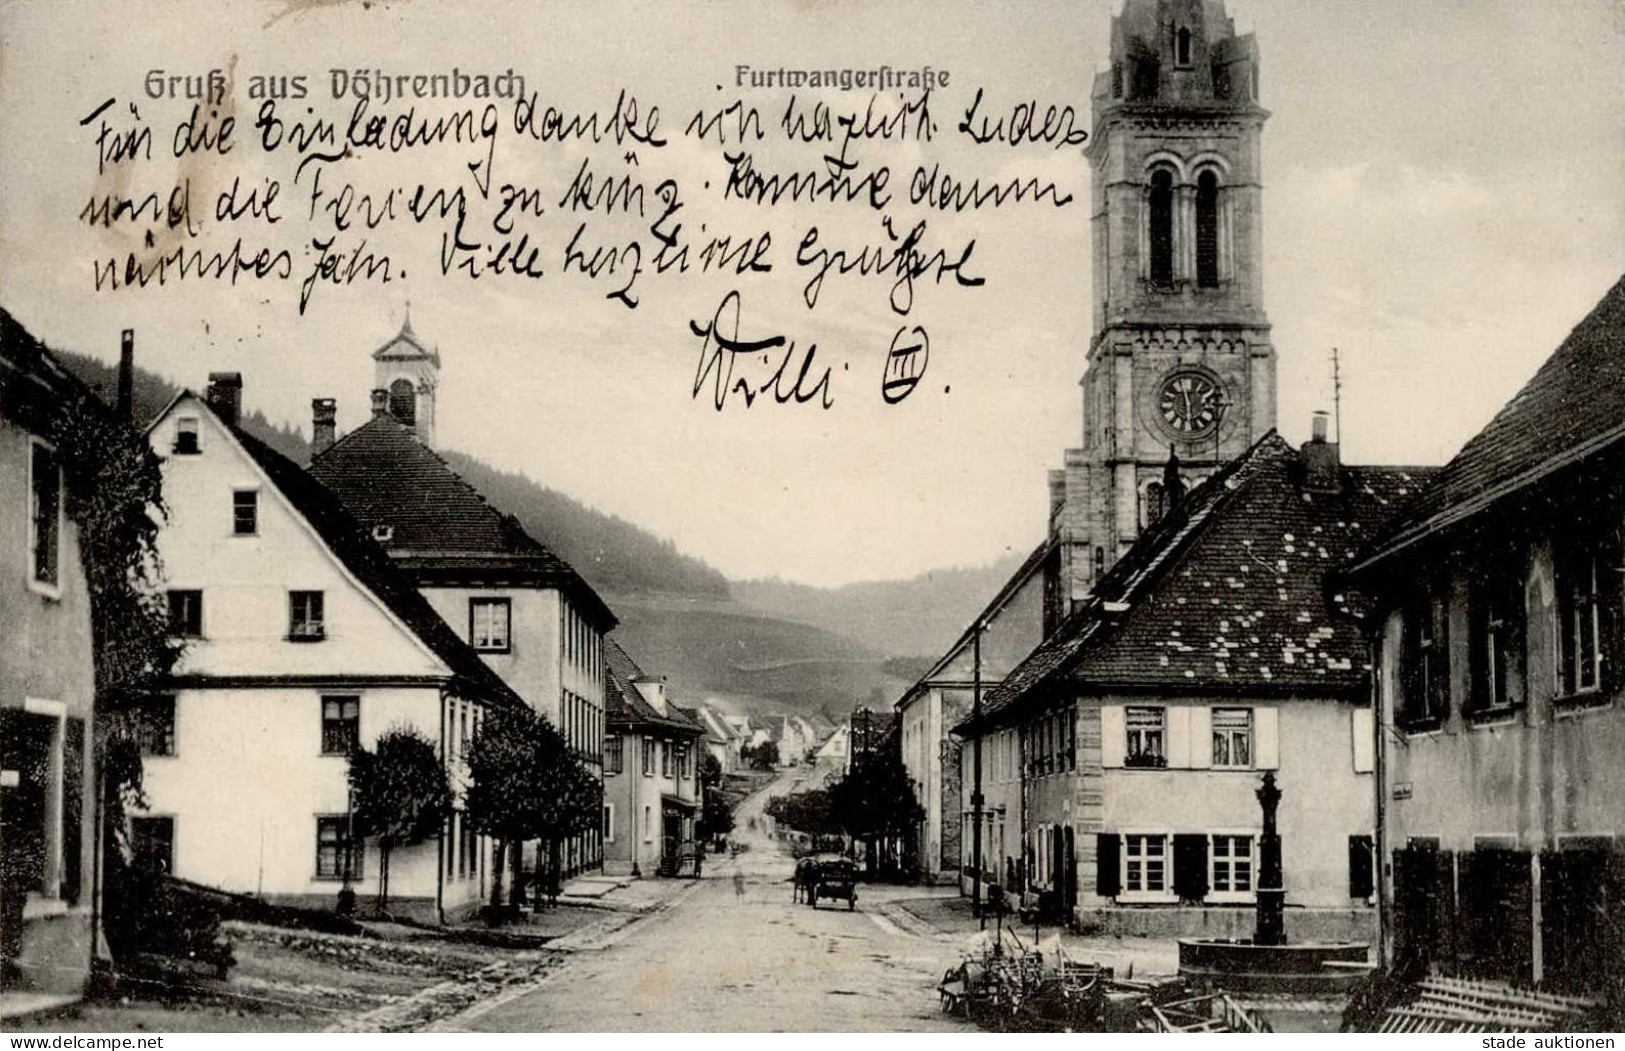 Gruß aus Döhrenbach
Furtwangerstraße
Für die Einladung danke ich herzlich. Leider
sind die Ferien zu kurz. Komme dann
nächstes Jahr. Viele herzliche Grüße
Willi III.
www.delcampe.net
stade auktionen